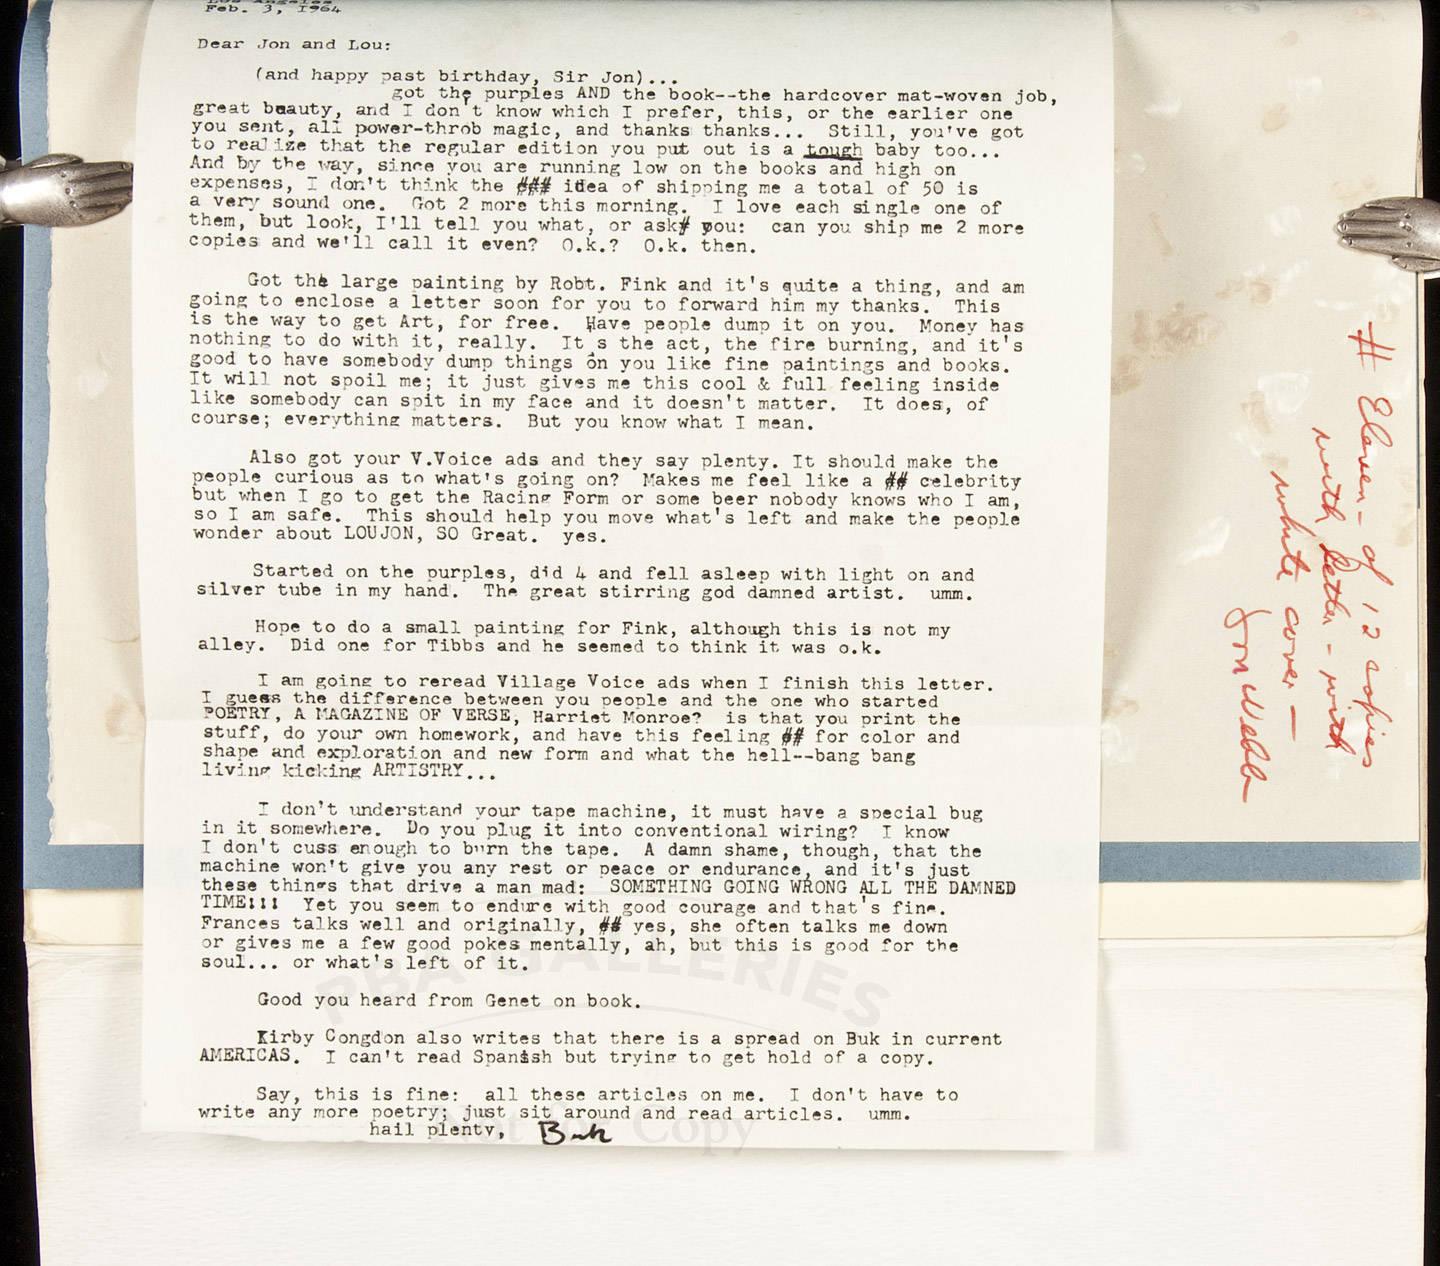 Los Angeles
Feb. 3, 1964
Dear Jon and Lou:
(and happy past birthday, Sir Jon)...
got the purples AND the book--the hardcover mat-woven job,
great beauty, and I don't know which I prefer, this, or the earlier one
you sent, all power-throb magic, and thanks thanks... Still, you've got
to realize that the regular edition you put out is a tough baby too...
And by the way, since you are running low on the books and high on
expenses, I don't think the ### idea of shipping me a total of 50 is
a very sound one. Got 2 more this morning. I love each single one of
them, but look, I'll tell you what, or ask# you: can you ship me 2 more
copies and we'll call it even? O.k.? O.k. then.
Got the large painting by Robt. Fink and it's quite a thing, and am
going to enclose a letter soon for you to forward him my thanks. This
is the way to get Art, for free. Have people dump it on you. Money has
nothing to do with it, really. It's the act, the fire burning, and it's
good to have somebody dump things on you like fine paintings and books.
It will not spoil me; it just gives me this cool & full feeling inside
like somebody can spit in my face and it doesn't matter. It does, of
course; everything matters. But you know what I mean.
Also got your V.Voice ads and they say plenty. It should make the
people curious as to what's going on? Makes me feel like a ## celebrity
but when I go to get the Racing Form or some beer nobody knows who I am,
so I am safe. This should help you move what's left and make the people
wonder about LOUJON, SO Great. yes.
Started on the purples, did 4 and fell asleep with light on and
silver tube in my hand. The great stirring god damned artist. umm.
Hope to do a small painting for Fink, although this is not my
alley. Did one for Tibbs and he seemed to think it was o.k.
I am going to reread Village Voice ads when I finish this letter.
I guess the difference between you people and the one who started
POETRY, A MAGAZINE OF VERSE, Harriet Monroe? is that you print the
stuff, do your own homework, and have this feeling ## for color and
shape and exploration and new form and what the hell--bang bang
living kicking ARTISTRY...
I don't understand your tape machine, it must have a special bug
in it somewhere. Do you plug it into conventional wiring? I know
I don't cuss enough to burn the tape. A damn shame, though, that the
machine won't give you any rest or peace or endurance, and it's just
these things that drive a man mad: SOMETHING GOING WRONG ALL THE DAMNED
TIME!!! Yet you seem to endure with good courage and that's fine.
Frances talks well and originally, ## yes, she often talks me down
or gives me a few good pokes mentally, ah, but this is good for the
soul... or what's left of it.
Good you heard from Genet on book.
Kirby Congdon also writes that there is a spread on Buk in current
AMERICAS. I can't read Spanish but trying to get hold of a copy.
Say, this is fine: all these articles on me. I don't have to
write any more poetry; just sit around and read articles. umm.
hail plenty, Buk
# Eleven - of 12 copies
with letter - with
white cover -
Jon Webb
PBA GALLERIES
Not for Copy